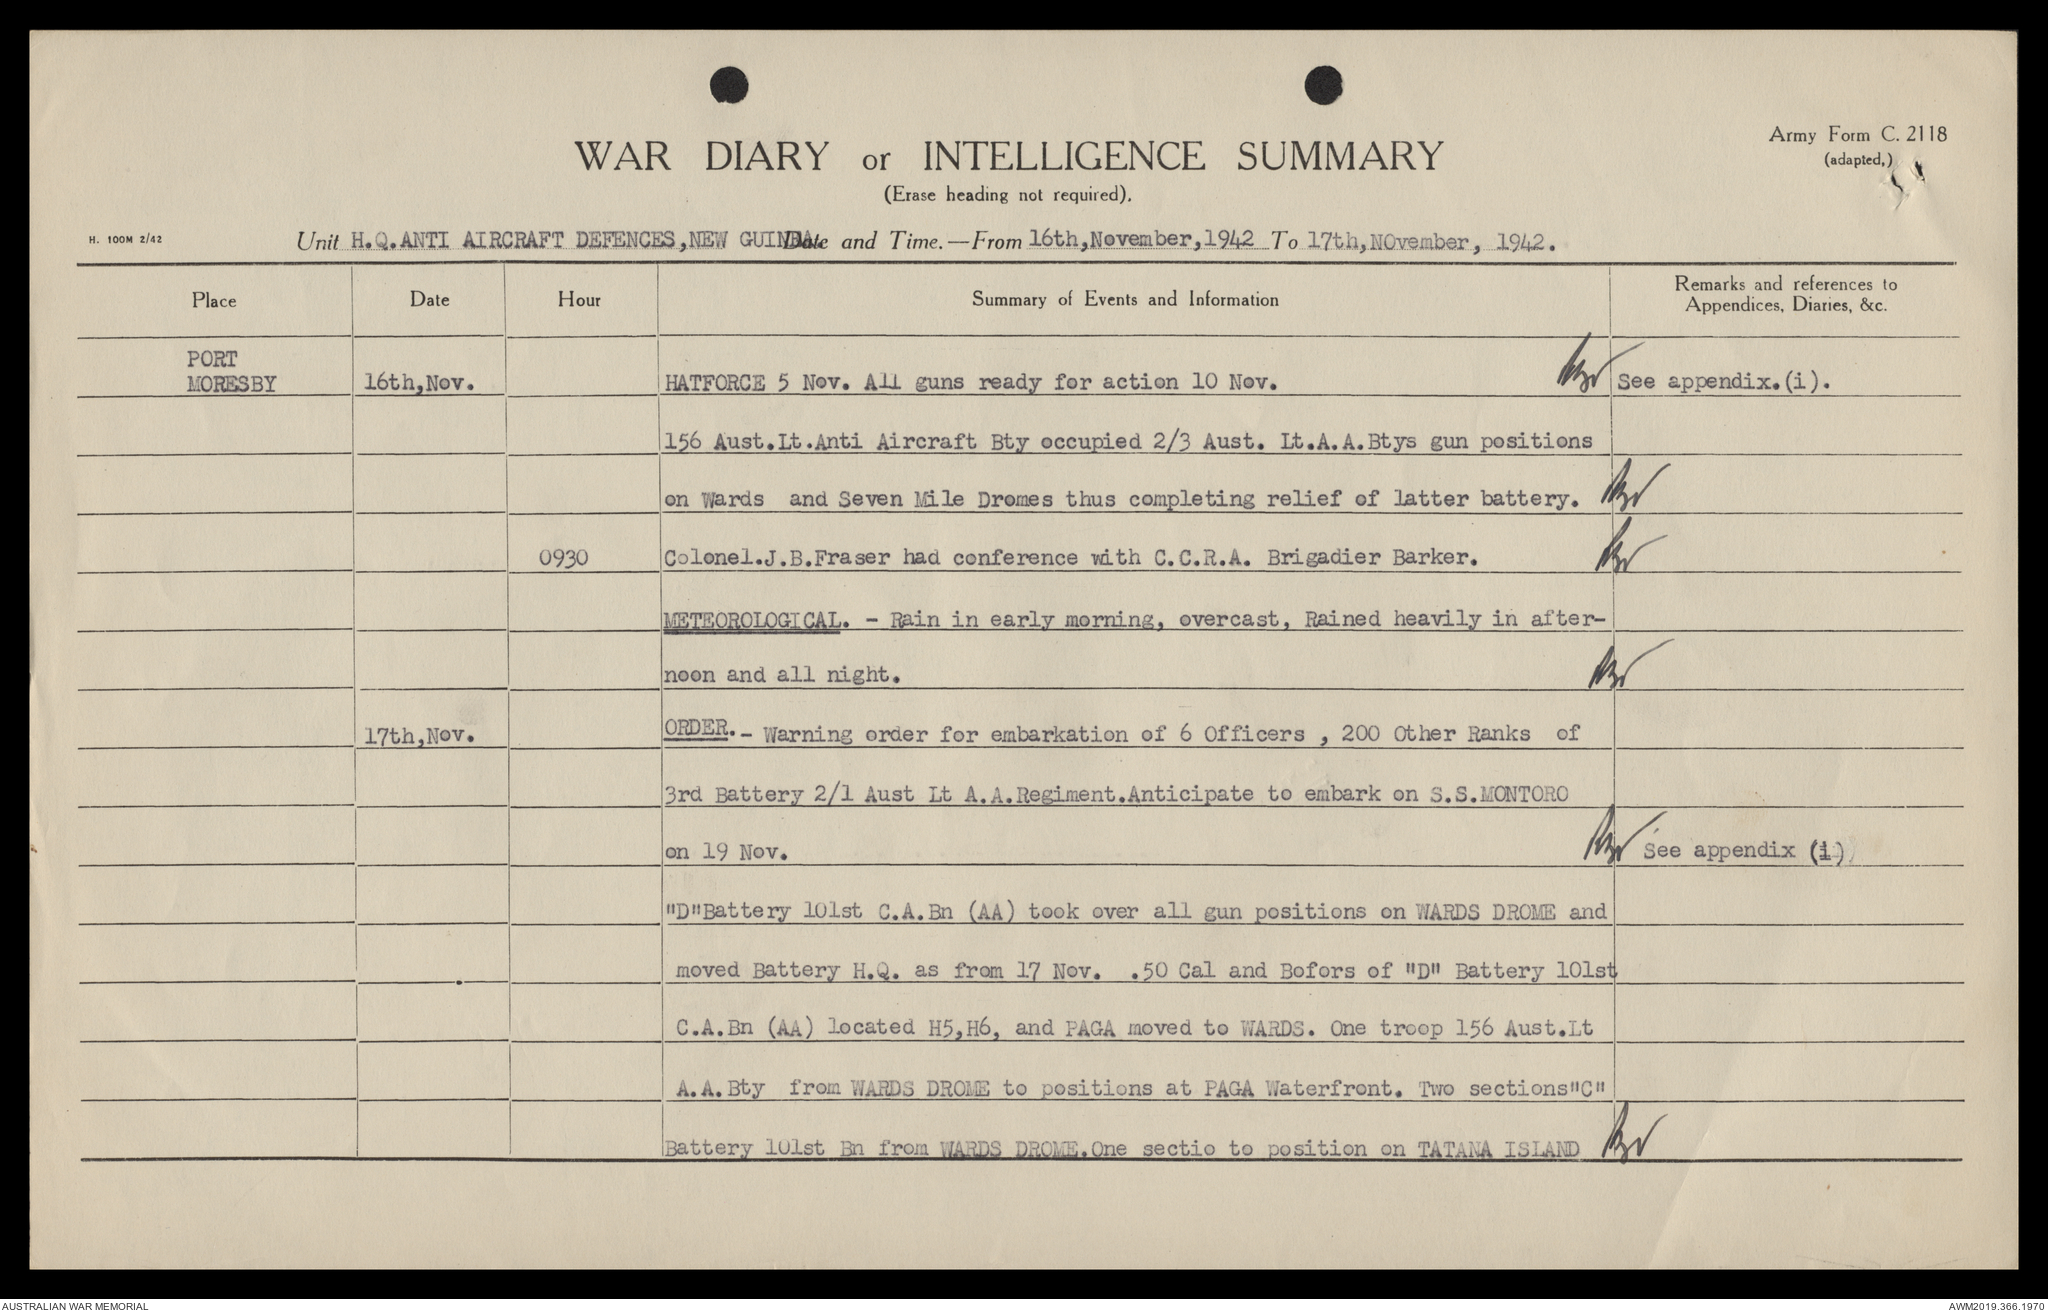 Army Form C. 2118
(adapted.)
WAR DIARY or INTELLIGENCE SUMMARY
(Erase heading not required).
H. 100M 2/42
Unit H.Q.ANTI AIRCRAFT DEFENCES,NEW GUINEA. Date and Time.—From 16th,November,1942 To 17th,NOvember, 1942.
Place Date Hour Summary of Events and Information Remarks and references to
Appendices, Diaries, &c.
PORT
MORESBY 16th,Nov. HATFORCE 5 Nov. All guns ready for action 10 Nov. See appendix.(i).
156 Aust.Lt.Anti Aircraft Bty occupied 2/3 Aust. Lt.A.A.Btys gun positions
on Wards and Seven Mile Dromes thus completing relief of latter battery.
0930 Colonel.J.B.Fraser had conference with C.C.R.A. Brigadier Barker.
METEOROLOGICAL. - Rain in early morning, overcast, Rained heavily in after-
noon and all night.
17th,Nov. ORDER.- Warning order for embarkation of 6 Officers , 200 Other Ranks of
3rd Battery 2/1 Aust Lt A.A.Regiment.Anticipate to embark on S.S.MONTORO
on 19 Nov. See appendix (i)
"D"Battery 101st C.A.Bn (AA) took over all gun positions on WARDS DROME and
moved Battery H.Q. as from 17 Nov. .50 Cal and Bofors of "D" Battery 101st
C.A.Bn (AA) located H5,H6, and PAGA moved to WARDS. One troop 156 Aust.Lt
A.A.Bty from WARDS DROME to positions at PAGA Waterfront. Two sections"C"
Battery 101st Bn from WARDS DROME.One sectio to position on TATANA ISLAND
AUSTRALIAN WAR MEMORIAL
AWM2019.366.1970